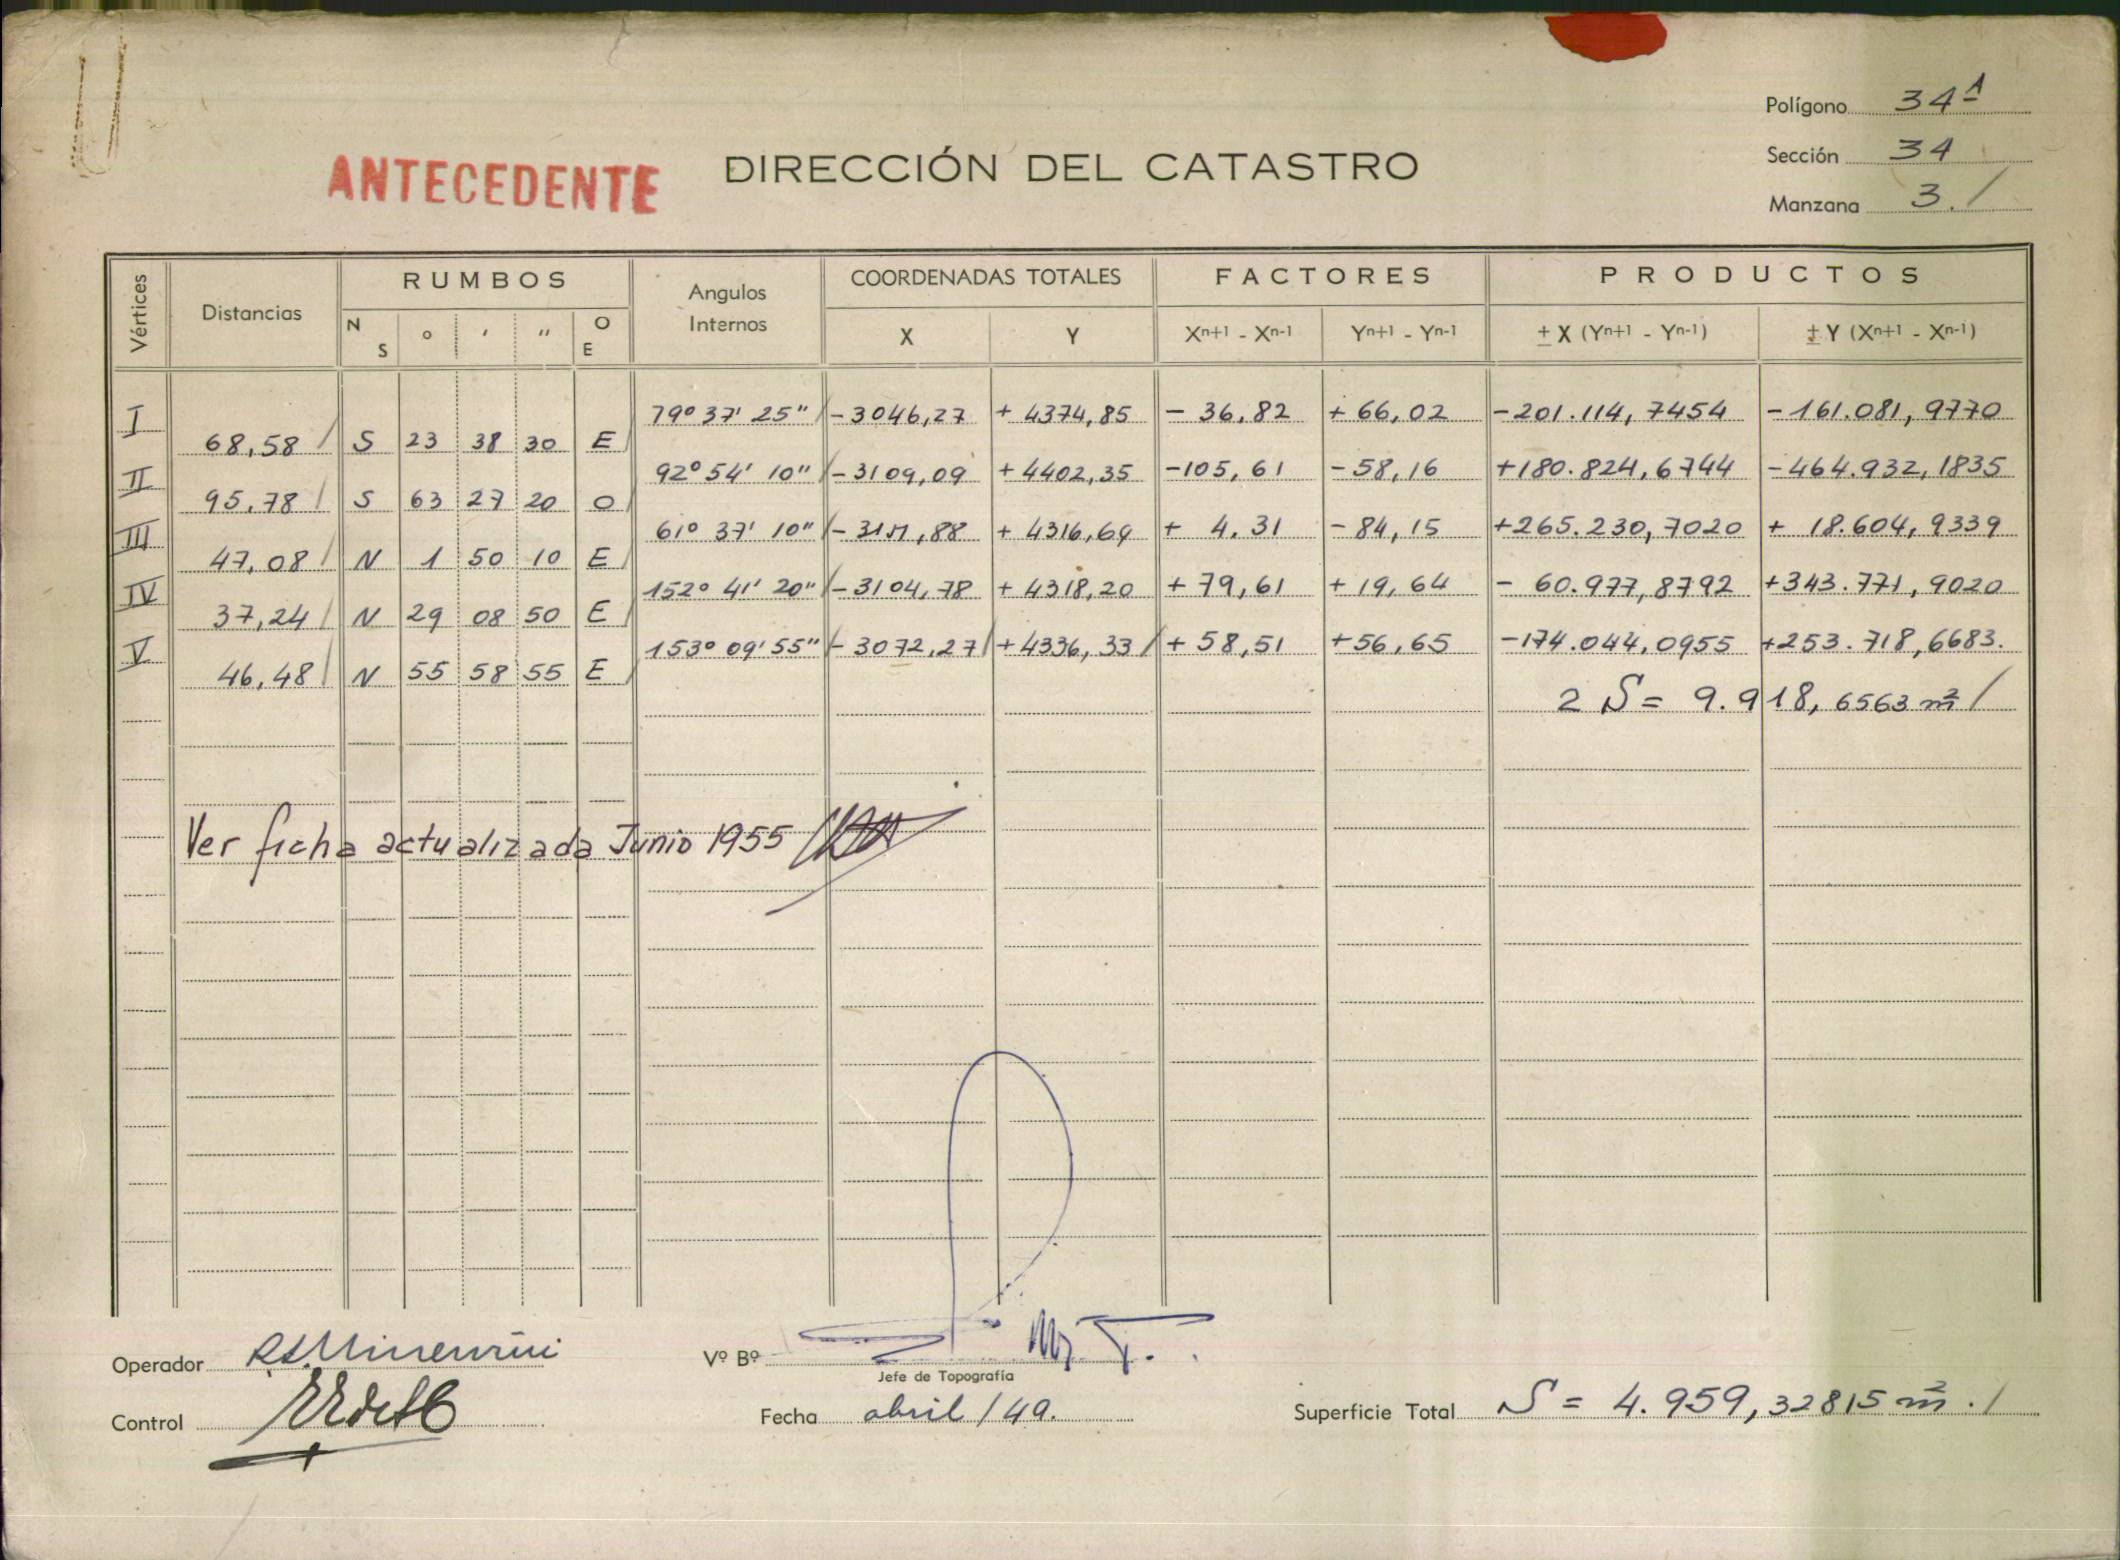 Polígono 34ᴬ
Sección 34
Manzana 3. /
ANTECEDENTE
DIRECCIÓN DEL CATASTRO
Vértices Distancias RUMBOS Angulos Internos COORDENADAS TOTALES FACTORES PRODUCTOS
N S ° ' " O E X Y Xⁿ⁺¹ - Xⁿ⁻¹ Yⁿ⁺¹ - Yⁿ⁻¹ ± X (Yⁿ⁺¹ - Yⁿ⁻¹) ± Y (Xⁿ⁺¹ - Xⁿ⁻¹)
I 79° 37' 25" / - 3046,27 + 4374,85 - 36,82 + 66,02 - 201.114,7454 - 161.081,9770
68,58 / S 23 38 30 E /
II 92° 54' 10" / - 3109,09 + 4402,35 - 105,61 - 58,16 + 180.824,6744 - 464.932,1835
95,78 / S 63 27 20 O /
III 61° 37' 10" - 3151,88 + 4316,69 + 4,31 - 84,15 + 265.230,7020 + 18.604,9339
47,08 / N 1 50 10 E /
IV 152° 41' 20" / - 3104,78 + 4318,20 + 79,61 + 19,64 - 60.977,8792 + 343.771,9020
37,24 / N 29 08 50 E /
V 153° 09' 55" / - 3072,27 / + 4336,33 / + 58,51 + 56,65 - 174.044,0955 + 253.718,6683.
46,48 / N 55 58 55 E /
2 S = 9.918,6563 m² /
Ver ficha actualizada Junio 1955
Operador
Vº Bº
Jefe de Topografía
Control
Fecha abril / 49.
Superficie Total S = 4.959,32815 m². /